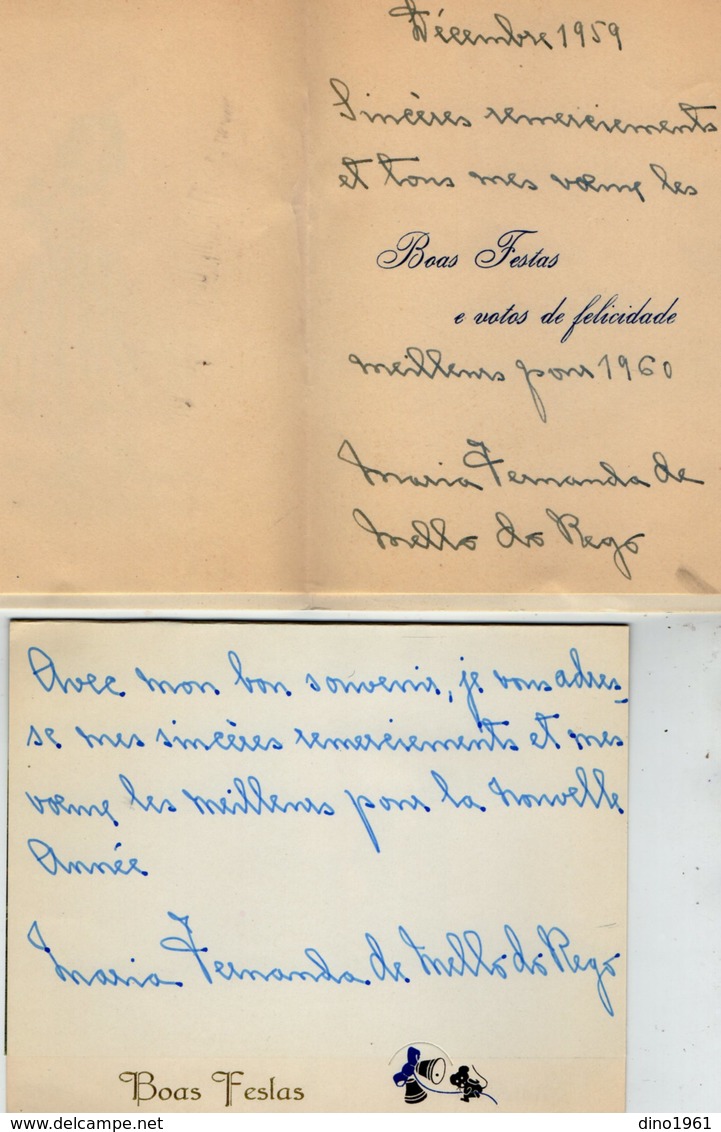 Décembre 1959
Sincères remerciements
et tous mes vœux les
Boas Festas
e votos de felicidade
meilleurs pour 1960
Maria Fernanda de
Mello do Rego
Avec mon bon souvenir, je vous adres-
se mes sincères remerciements et mes
vœux les meilleurs pour la nouvelle
Année
Maria Fernanda de Mello do Rego
Boas Festas
dino1961